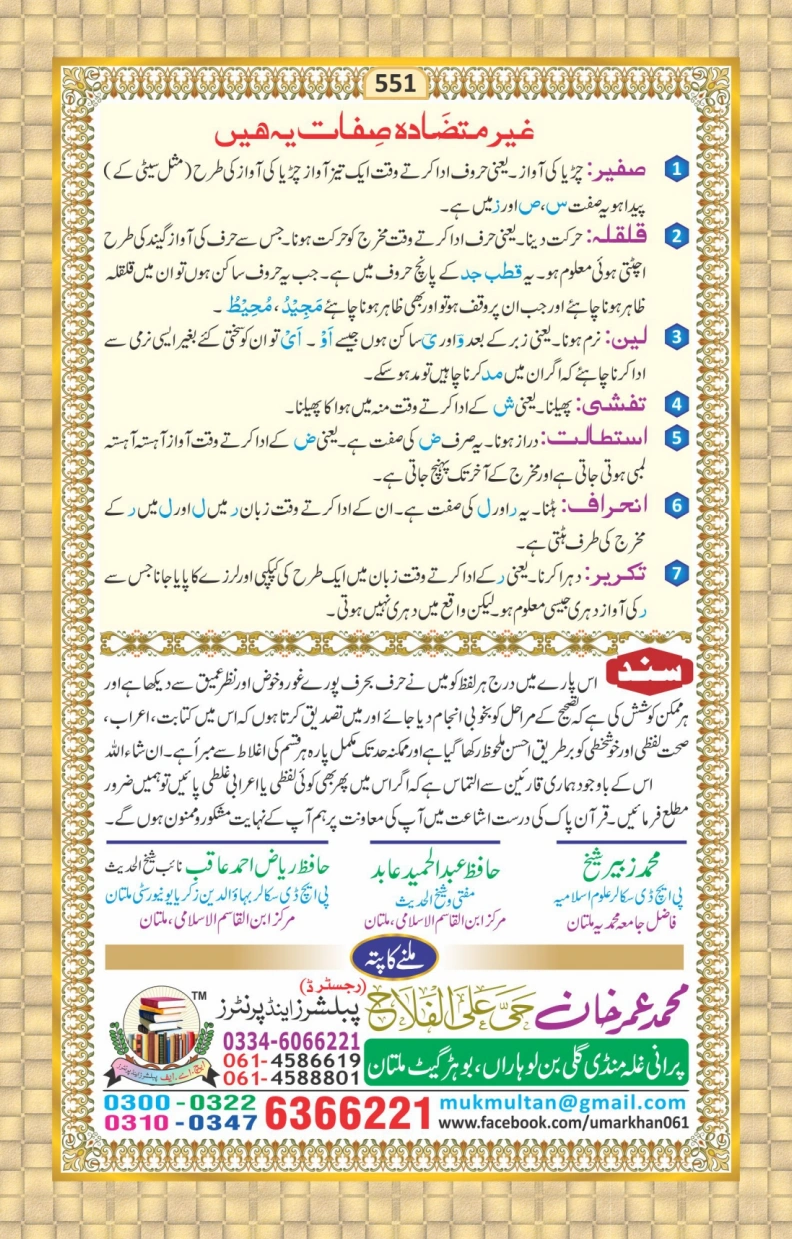 551
غیر متضادہ صفات یہ ہیں
1 صفیر: چڑیا کی آواز۔ یعنی حروف ادا کرتے وقت ایک تیز آواز چڑیا کی آواز کی طرح (مثل سیٹی کے)
پیدا ہو یہ صفت س، ص اور ز میں ہے۔
2 قلقلہ: حرکت دینا۔ یعنی حرف ادا کرتے وقت مخرج کو حرکت ہونا۔ جس سے حرف کی آواز گیند کی طرح
اچٹتی ہوئی معلوم ہو۔ یہ قطب جد کے پانچ حروف میں ہے۔ جب یہ حروف ساکن ہوں تو ان میں قلقلہ
ظاہر ہونا چاہئے اور جب ان پر وقف ہو تو اور بھی ظاہر ہونا چاہئے مَجِیْدُ، مُحِیْطُ ۔
3 لین: نرم ہونا۔ یعنی زبر کے بعد و اور ی ساکن ہوں جیسے اَوْ ۔ اَیْ تو ان کو سختی کئے بغیر ایسی نرمی سے
ادا کرنا چاہئے کہ اگر ان میں مد کرنا چاہیں تو مد ہو سکے۔
4 تفشی: پھیلنا۔ یعنی ش کے ادا کرتے وقت منہ میں ہوا کا پھیلنا۔
5 استطالت: دراز ہونا۔ یہ صرف ض کی صفت ہے۔ یعنی ض کے ادا کرتے وقت آواز آہستہ آہستہ
لمبی ہوتی جاتی ہے اور مخرج کے آخر تک پہنچ جاتی ہے۔
6 انحراف: ہٹنا۔ یہ ر اور ل کی صفت ہے۔ ان کے ادا کرتے وقت زبان ر میں ل اور ل میں ر کے
مخرج کی طرف ہٹتی ہے۔
7 تکریر: دہرا کرنا۔ یعنی ر کے ادا کرتے وقت زبان میں ایک طرح کی کپکپی اور لرزے کا پایا جانا جس سے
ر کی آواز دہری جیسی معلوم ہو۔ لیکن واقع میں دہری نہیں ہوتی۔
سند اس پارے میں درج ہر لفظ کو میں نے حرف بحرف پورے غور و خوض اور نظر عمیق سے دیکھا ہے اور
ہر ممکن کوشش کی ہے کہ تصحیح کے مراحل کو بخوبی انجام دیا جائے اور میں تصدیق کرتا ہوں کہ اس میں کتابت، اعراب،
صحت لفظی اور خوشخطی کو بر طریق احسن ملحوظ رکھا گیا ہے اور ممکنہ حد تک مکمل پارہ ہر قسم کی اغلاط سے مبرا ہے۔ ان شاء اللہ
اس کے باوجود ہماری قارئین سے التماس ہے کہ اگر اس میں پھر بھی کوئی لفظی یا اعرابی غلطی پائیں تو ہمیں ضرور
مطلع فرمائیں۔ قرآن پاک کی درست اشاعت میں آپ کی معاونت پر ہم آپ کے نہایت مشکور و ممنون ہوں گے۔
محمد زبیر شیخ
پی ایچ ڈی سکالر علوم اسلامیہ
فاضل جامعہ محمدیہ ملتان
حافظ عبدالحمید عابد
مفتی و شیخ الحدیث
مرکز ابن القاسم الاسلامی، ملتان
حافظ ریاض احمد عاقب نائب شیخ الحدیث
پی ایچ ڈی سکالر بہاؤ الدین زکریا یونیورسٹی ملتان
مرکز ابن القاسم الاسلامی، ملتان
ملنے کا پتہ
محمد عمر خان حی علی الفلاح پبلشرز اینڈ پرنٹرز (رجسٹرڈ)
TM
پرانی غلہ منڈی گلی بن لوہاراں، بوہڑ گیٹ ملتان
0334-6066221
061-4586619
061-4588801
0300 - 0322
0310 - 0347
6366221
mukmultan@gmail.com
www.facebook.com/umarkhan061